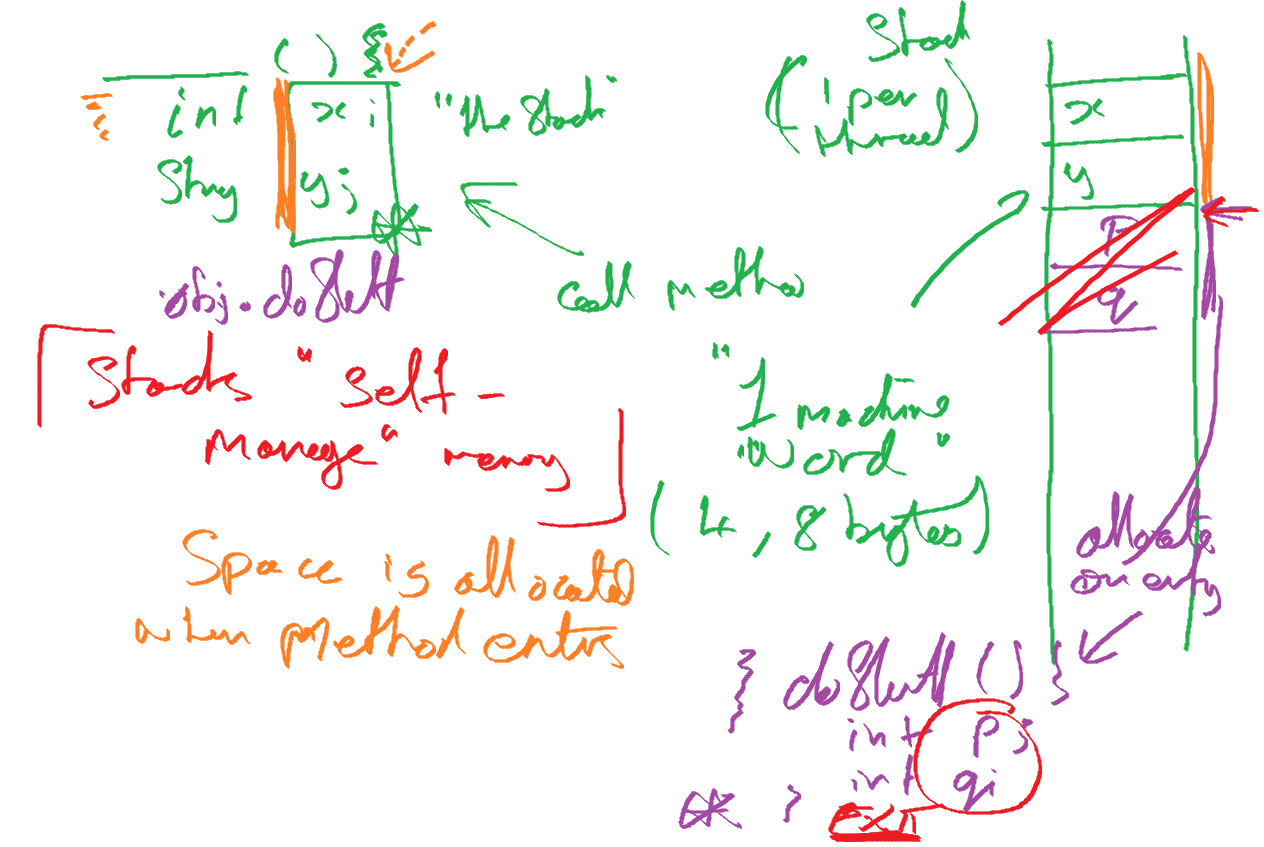 ( ) {
int x ;
String y ;
"the stack"
obj.doStuff
call method
Stack
( 1 per thread )
x
y
p
q
Stacks "self-
manage" memory
"1 machine
"word"
( 4 , 8 bytes )
Space is allocated
when method enters
allocate
on entry
} doStuff ( ) {
int p ;
int q ;
* }
exit